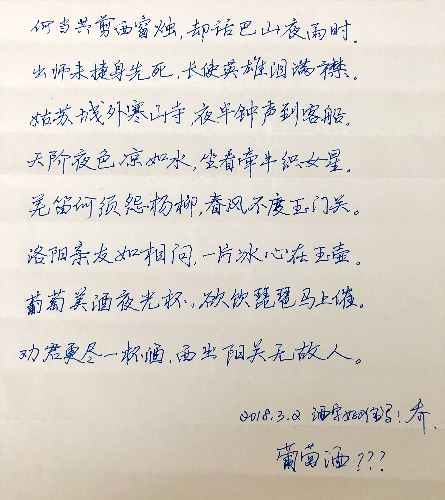 何当共剪西窗烛,却话巴山夜雨时.
出师未捷身先死,长使英雄泪满襟.
姑苏城外寒山寺,夜半钟声到客船.
天阶夜色凉如水,坐看牵牛织女星.
羌笛何须怨杨柳,春风不度玉门关.
洛阳亲友如相问,一片冰心在玉壶.
葡萄美酒夜光杯,欲饮琵琶马上催.
劝君更尽一杯酒,西出阳关无故人。
2018.3.2 酒字好难写!乔.
葡萄酒???